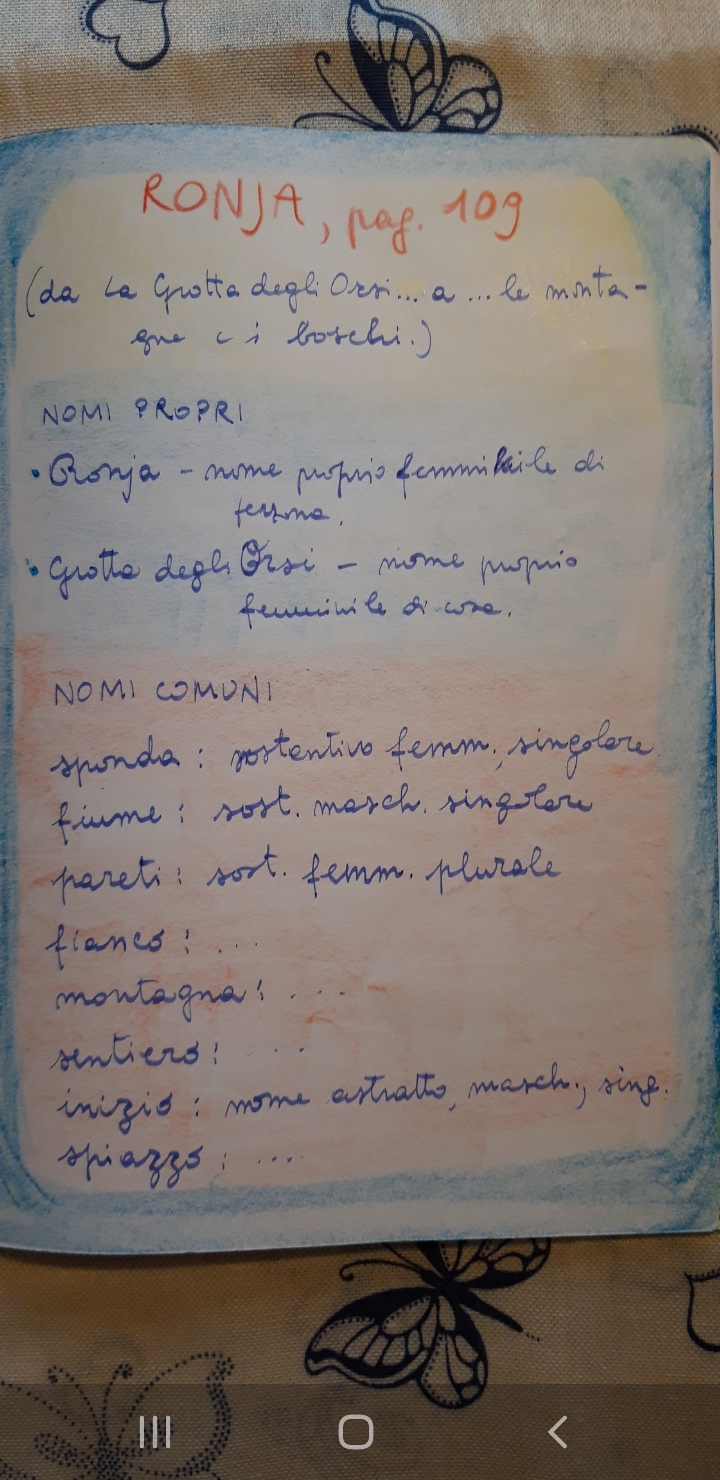 RONJA, pag. 109
(da La Grotta degli Orsi... a ... le monta-
gne e i boschi.)
NOMI PROPRI
• Ronja - nome proprio femminile di
persona.
• Grotta degli Orsi - nome proprio
femminile di cosa.
NOMI COMUNI
sponda : sostantivo femm., singolare
fiume : sost. masch. singolare
pareti : sost. femm. plurale
fianco : ...
montagna : ...
sentiero : ...
inizio : nome astratto, masch., sing.
spiazzo : ...